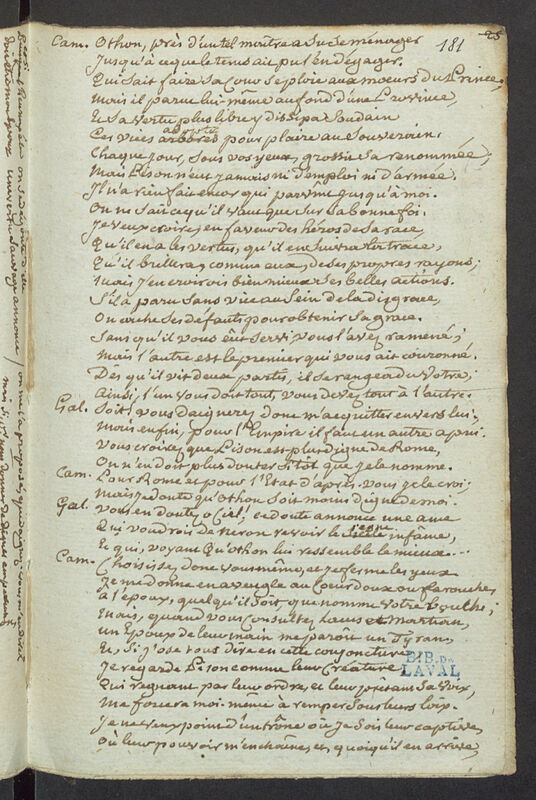 25
181
Cam. Othon, près d'un tel maître a su se ménager
Jusqu'à ce que le tems ait pu l'en dégager.
Qui sait faire sa Cour se ploie aux moeurs du Prince,
Mais il parut lui-même au fond d'une Province,
Et sa vertu plus libre y dissipa soudain
Ces vices adoptés pour plaire au Souverain.
Chaque jour, sous vos yeux, grossit sa renommée,
Mais Pison n'eut jamais ni d'emploi ni d'armée.
Il n'a rien fait encor qui parvînt jusqu'à moi.
On ne sait ce qu'il vaut que sur sa bonne foi.
Je veux croire, en faveur des héros de sa race,
Qu'il en a les vertus, qu'il en suivra la trace,
Qu'il brillera, comme eux, de ses propres rayons;
Mais j'en croirois bien mieux ses belles actions.
S'il a paru sans vice au sein de la disgrace,
On cache ses défauts pour obtenir sa grace.
Sans qu'il vous eût servi vous l'avez ramené;
Mais l'autre est le premier qui vous ait couronné.
Dès qu'il vit deux partis, il se rangea du vôtre;
Ainsi, l'un vous doit tout, vous devez tout à l'autre.
Gal. Soit! vous daignerez donc m'acquitter envers lui;
Mais enfin, pour l'Empire il faut un autre apui.
Vous croirez que Pison est plus digne de Rome,
On n'en doit plus douter sitôt que je le nomme.
Cam. Pour Rome et pour l'Etat d'après vous je le croi;
Mais je doute qu'Othon soit moins digne de moi.
Gal. Vous en doutez, o Ciel! ce doute annonce une ame
Qui voudroit de Neron revoir le siècle infâme,
Et qui, voyant qu'Othon lui ressemble le mieux...
Cam. Choisissez donc vous même, et je ferme les yeux
Je me donne en aveugle au Coeur doux ou farouche,
à l'époux, quel qu'il soit que nomme votre bouche;
Mais, quand vous consultez Lacus et Martian,
un époux de leur main me paroît un Tyran,
Et, si j'ose tout dire en cette conjoncture
Je regarde Pison comme leur Créature
Qui regnant par leur ordre, et leur prêtant sa voix,
Me forcera moi-même à ramper sous leurs loix.
Je ne veux point d'un trône où je sois leur captive,
où leur pouvoir m'enchaîne, et, quoiqu'il en arrive,
BIB. DE
LAVAL